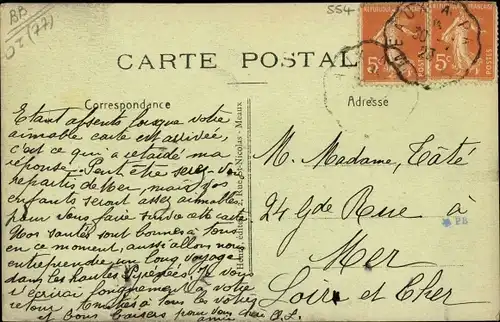 BB
02 (77)
554
RÉPUBLIQUE FRANÇAISE
5c POSTES
5c POSTES
CARTE POSTALE
Correspondance
Adresse
Etant absents lorsque votre
aimable carte est arrivée,
c'est ce qui a retardé ma
réponse. Peut être serez-vous
repartis de Mer, mais vos
enfants seront assez aimables
pour vous faire suivre cette carte
Nos santés sont bonnes à tous
en ce moment, aussi allons nous
entreprendre un long voyage
dans les hautes Pyrénées. Je vous
écrirai longuement à votre
retour. Amitiés à tous les vôtres
et bons baisers pour vous chère amie
Rue St-Nicolas - Meaux
M. Madame, Tâté
24 Gde Rue à
Mer
Loir et Cher